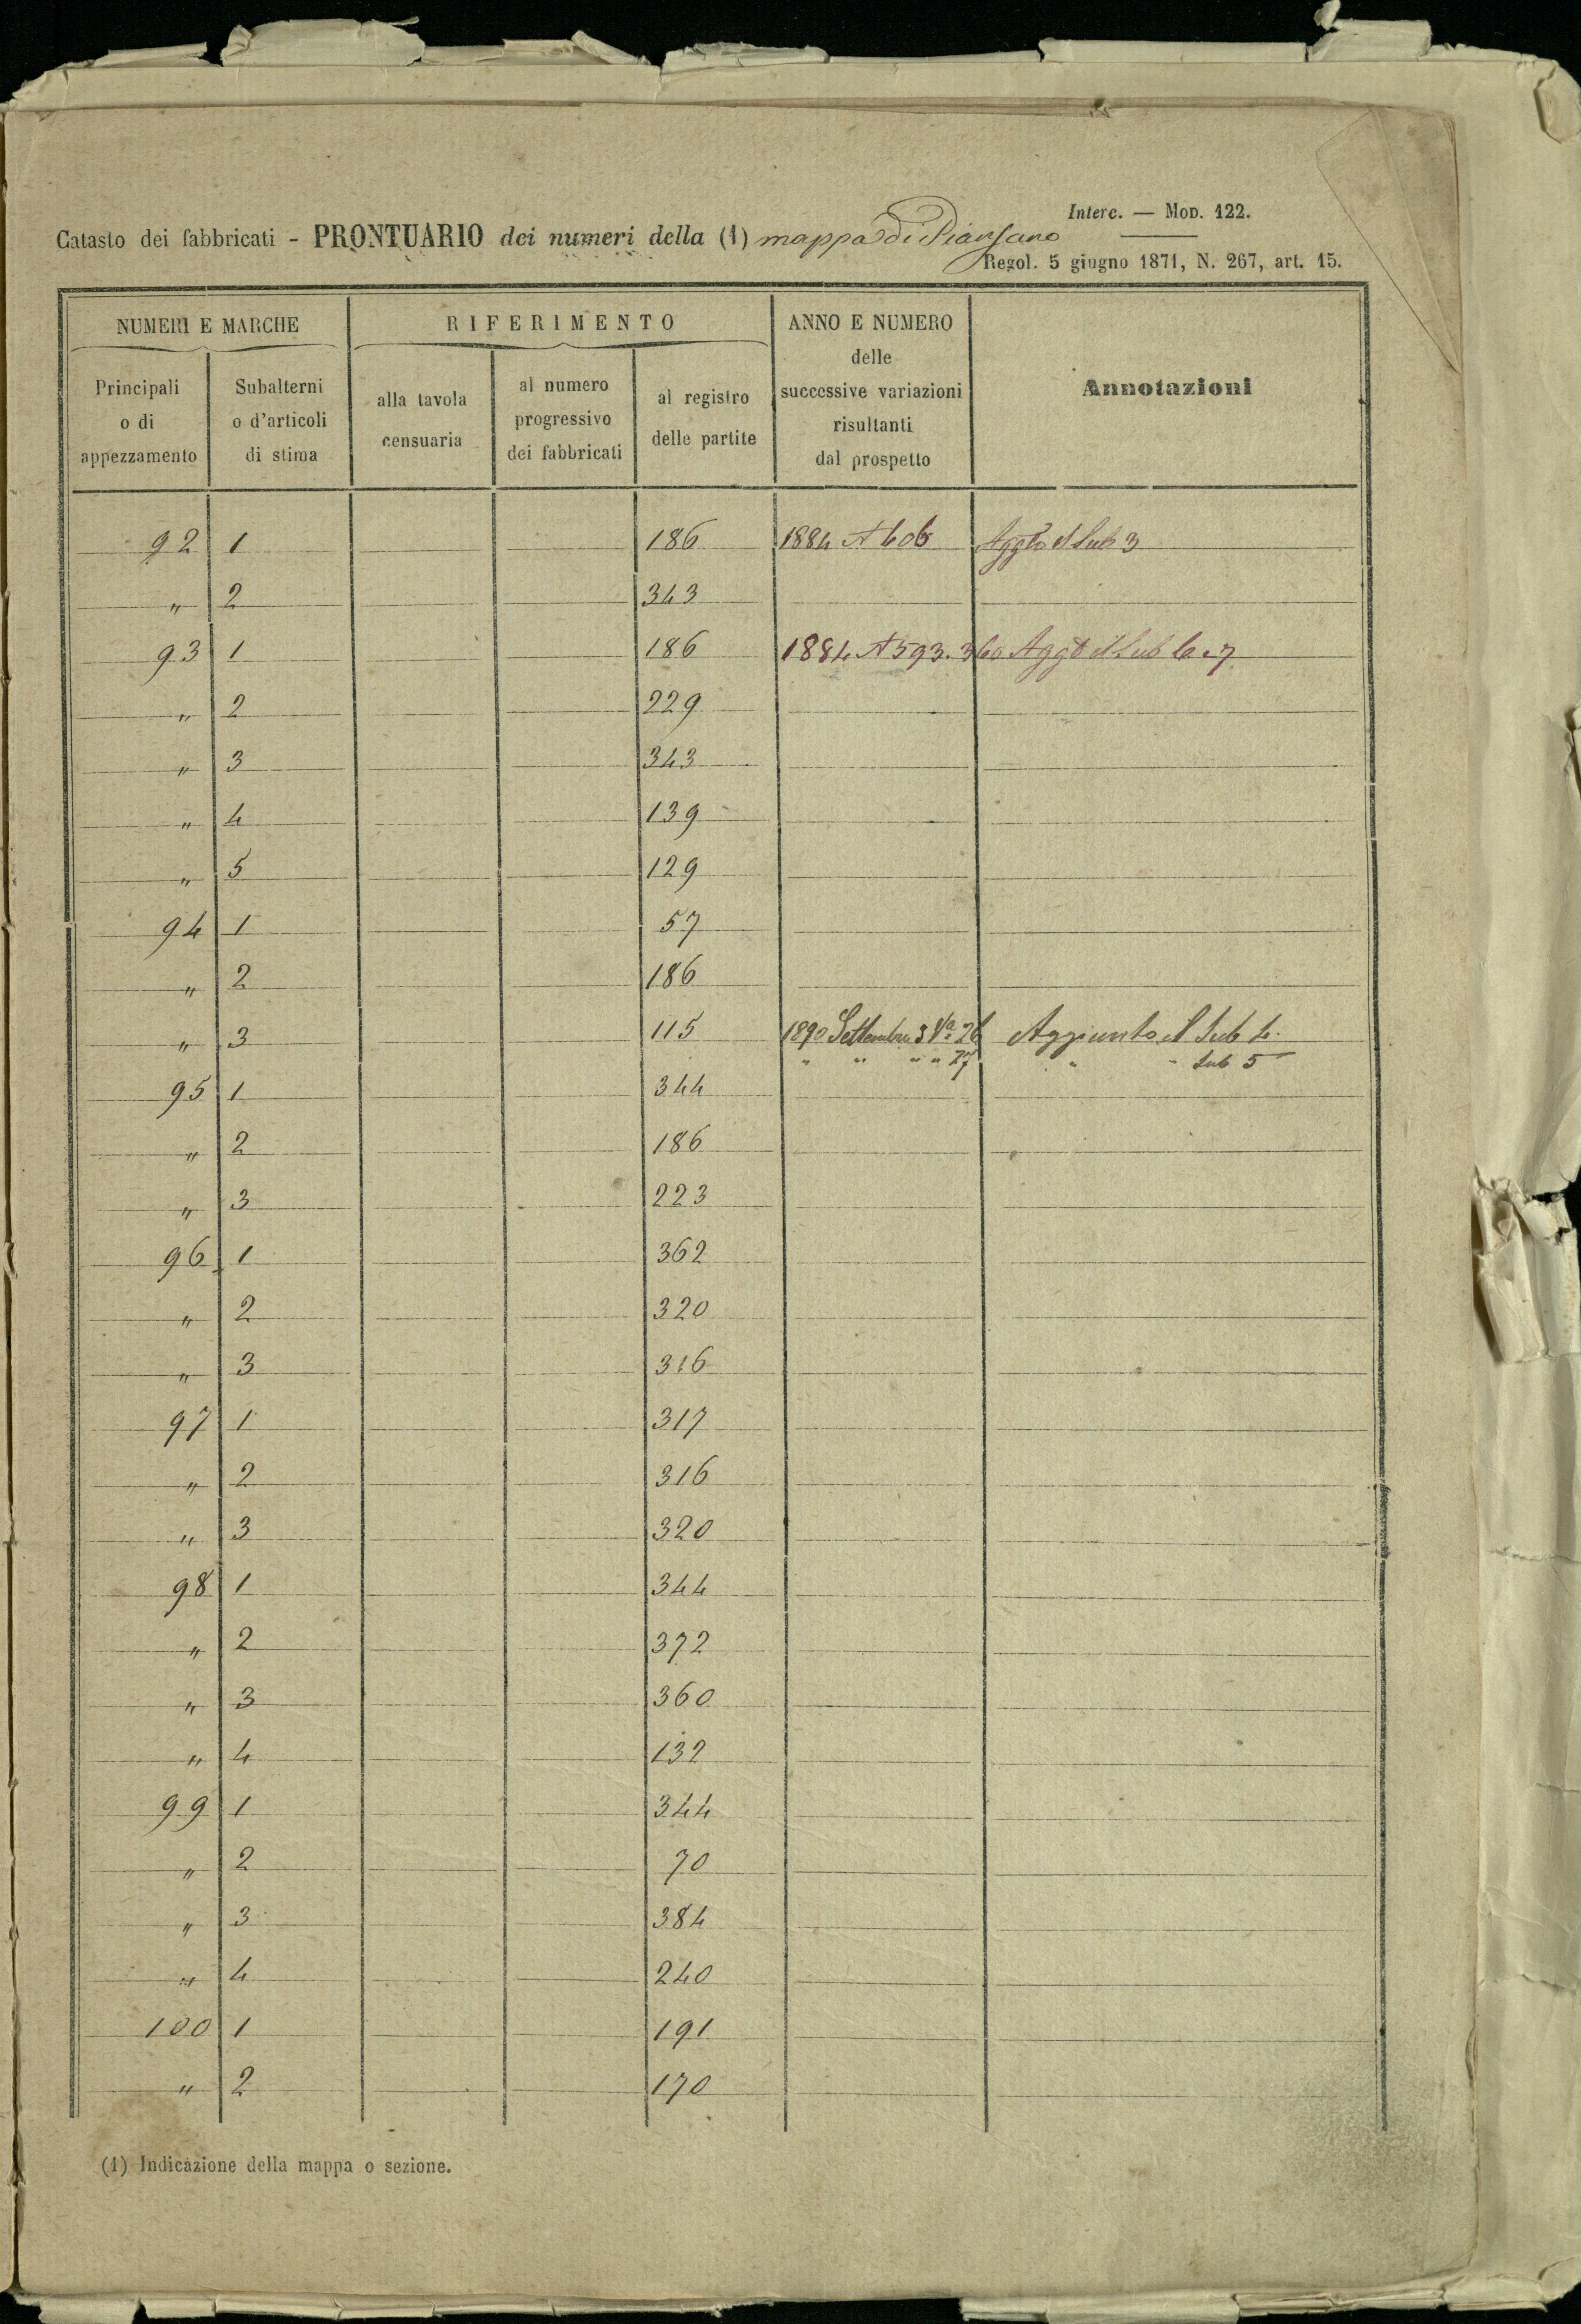 Interc. — Mod. 122.
Catasto dei fabbricati - PRONTUARIO dei numeri della (1) mappa di Piansano
Regol. 5 giugno 1871, N. 267, art. 15.
NUMERI E MARCHE RIFERIMENTO ANNO E NUMERO delle successive variazioni risultanti dal prospetto Annotazioni
Principali o di appezzamento Subalterni o d'articoli di stima alla tavola censuaria al numero progressivo dei fabbricati al registro delle partite
92 1 186 1884 N 606 Aggto il Sub 3
" 2 343
93 1 186 1884 N 593. 360 Aggto il Sub 6.7
" 2 229
" 3 343
" 4 139
" 5 129
94 1 57
" 2 186
" 3 115 1890 Settembre 3 Va 26 Aggiunto il Sub 4.
" " " " 27 " " Sub 5
95 1 344
" 2 186
" 3 223
96 1 362
" 2 320
" 3 316
97 1 317
" 2 316
" 3 320
98 1 344
" 2 372
" 3 360
" 4 132
99 1 344
" 2 70
" 3 384
" 4 240
100 1 191
" 2 170
(1) Indicazione della mappa o sezione.